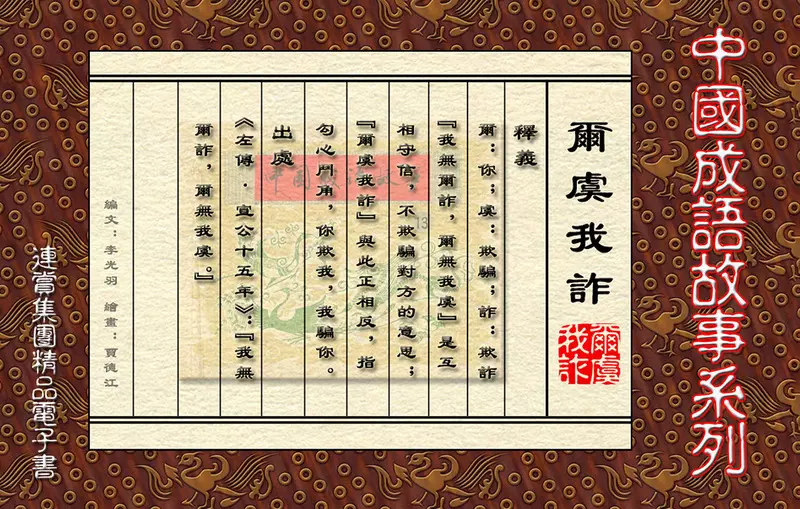 中國成語故事系列
爾虞我詐
爾虞
我詐
釋義
爾：你；虞：欺騙；詐：欺詐
『我無爾詐，爾無我虞』是互
相守信，不欺騙對方的意思；
『爾虞我詐』與此正相反，指
勾心鬥角，你欺我，我騙你。
出處
《左傳．宣公十五年》：『我無
爾詐，爾無我虞。』
編文：李光羽 繪畫：賈德江
連嘗集團精品電子書